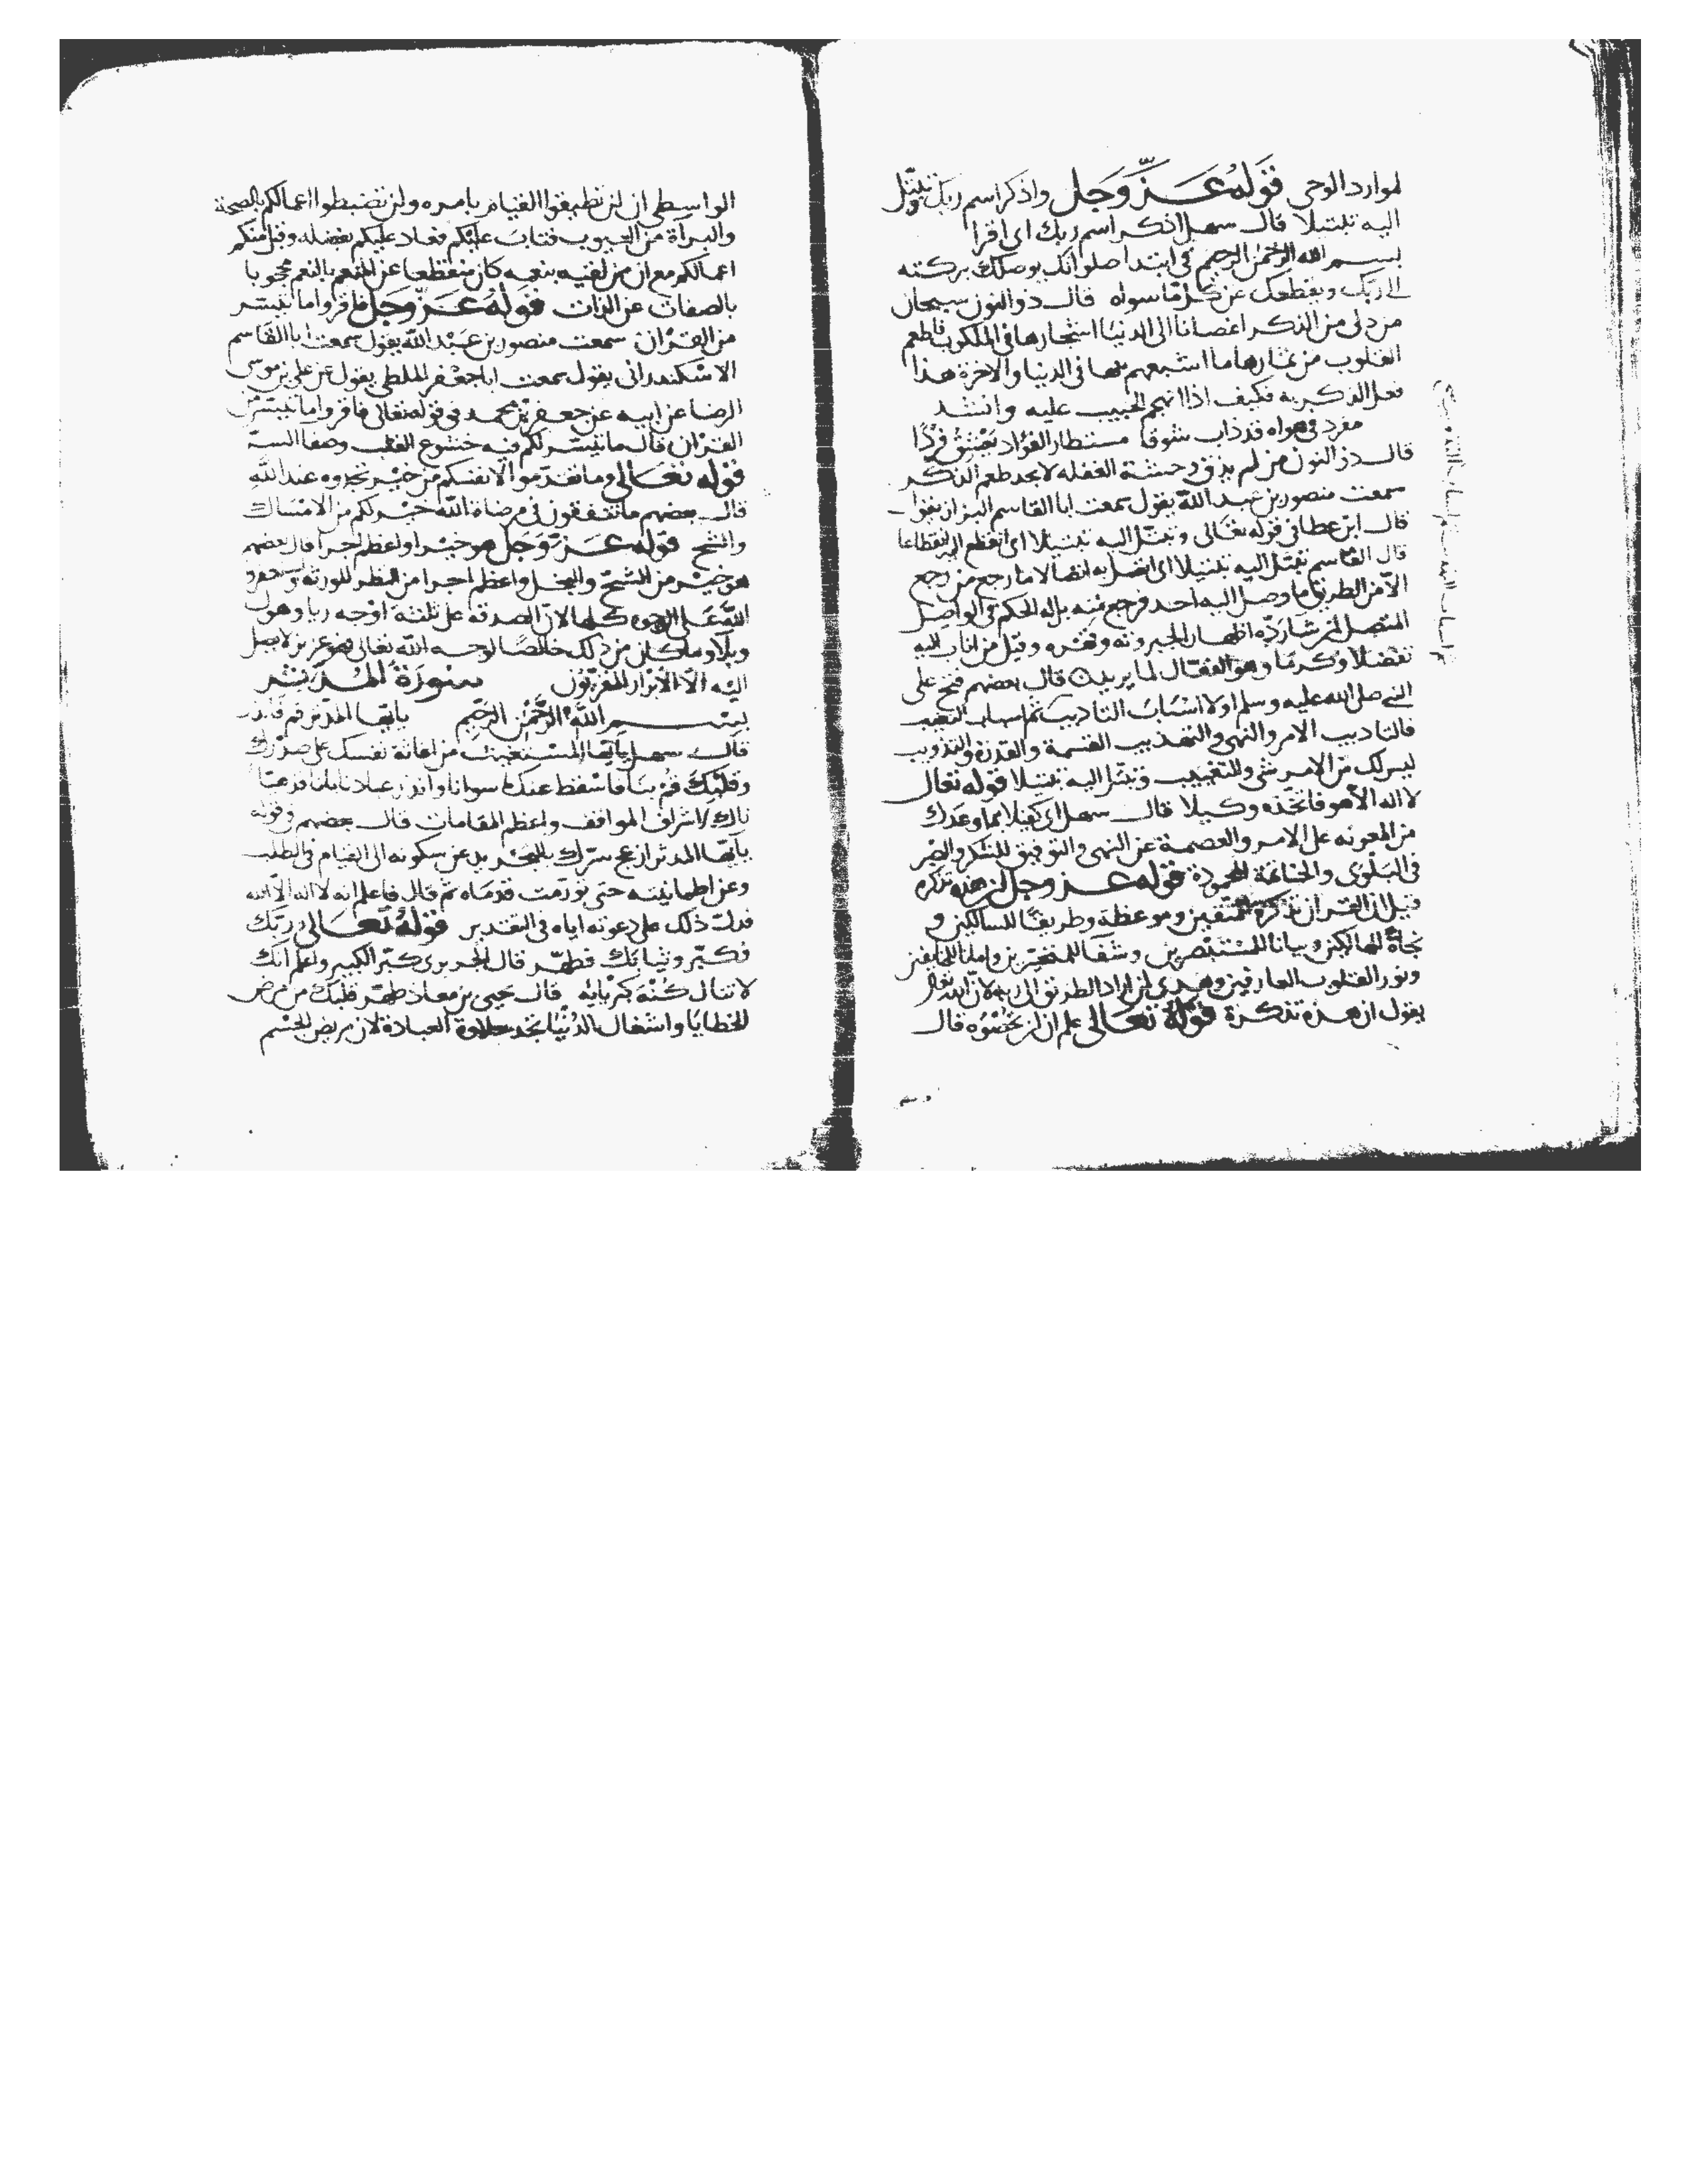 لموارد الوحي قوله عز وجل واذكر اسم ربك وتبتل
اليه تبتيلا قال سهل اذكر اسم ربك اي اقرا
بسم الله الرحمن الرحيم في ابتدا صلواتك يوصلك بركته
الي ربك ويقطعك عن كل ما سواه قال ذو النون سبحان
من دلى من الذكر اغصانا الى الدنيا اشجارها في الملكوت فاطعم
القلوب من ثمارها ما اشبعهم بها في الدنيا والاخرة هذا
فعل الذكر به فكيف اذا انهجم الحبيب عليه وانشد
مفرد في هواه قد ذاب شوقا مستطار الفؤاد يعشق فردا
قال ذو النون من لم يذق وحشة الغفله لا يجد طعم الذكر
سمعت منصور بن عبد الله يقول سمعت ابا القاسم البزاز يقول
قال ابن عطا في قوله تعالى وتبتل اليه تبتيلا اي انقطع اليه انقطاعا
قال القاسم تبتل اليه تبتيلا اي اتصل به اتصالا ما رجع من رجع
الا من الطريق ما وصل اليه احد فرجع عنه بل له الحكم في الواصل
المتصل ان شا رده اظهار الجبروته وقهره وقيل من اناب اليه
تفضلا وكرما وهو الفعال لما يريد قال بعضهم فتح على
النبي صلى الله عليه وسلم اولا اسباب التاديب ثم اسباب التهذيب
فالتاديب الامر والنهي والتهذيب القسمة والقدرة والتذويب
ليس لك من الامر شي والتغييب وتبتل اليه تبتيلا قوله تعالى
لا اله الا هو فاتخذه وكيلا قال سهل اي كفيلا بما وعدك
من المعونه على الامر والعصمة عن النهي والتوفيق للشكر والصبر
في البلوى والخاتمة المحمودة قوله عز وجل ان هذه تذكرة
قيل ان القران تذكرة للمتقين وموعظة وطريقا للسالكين و
نجاة للهالكين وبيانا للمستبصرين وشفا للمتحيرين وامانا للخايفين
ونور القلوب العارفين وهدى لمن اراد الطريق الى ربه لان الله تعالى
يقول ان هذه تذكرة قوله تعالى علم ان لن تحصوه قال
الواسطي ان لن تطيقوا القيام بامره ولن تضبطوا اعمالكم بالصحة
والبرآة من العيوب فتاب عليكم فعاد عليكم بفضله وقبل منكم
اعمالكم مع ان من لقيه بنعيه كان منقطعا عن المنعم بالنعم محجوبا
بالصفات عن الذات قوله عز وجل فاقروا ما تيسر
من القران سمعت منصور بن عبد الله يقول سمعت ابا القاسم
الاسكندراني يقول سمعت ابا جعفر الملطي يقول عن علي بن موسى
الرضا عن ابيه عن جعفر بن محمد في قوله تعالى فاقروا ما تيسر من
القران قال ما تيسر لكم فيه خشوع القلب وصفا السر
قوله تعالى وما تقدموا لانفسكم من خير تجدوه عند الله
قال بعضهم ما تنفقون في مرضاة الله خير لكم من الامساك
والشح قوله عز وجل هو خيرا واعظم اجرا قال بعضهم
هو خير من الشح والبخل واعظم اجرا من النظر للورثه
الله على الوجوه كلها لان الصدقة على ثلثة اوجه ريا وهول
وبلا وما كان من ذلك خالصا لوجه الله تعالى فهو عزيز لا يصل
اليه الا الابرار المقربون سورة المدثر
بسم الله الرحمن الرحيم يايها المدثر قم فانذر
قال سهل يايها المستغيث من اغاثة نفسك على صدرك
وقلبك قم بنا فاسقط عنك ما سوانا وانذر عبادنا بانا قد هيا
ناك لاشرف المواقف واعظم المقامات قال بعضهم في قوله
يايها المدثر ازعج سرك بالتجريد عن سكونه الى القيام في الطلب
وعن اطمانيته حتى تورمت قدماه ثم قال فاعلم انه لا اله الا الله
فدلت ذلك على دعوته اياه في التقدير قوله تعالى وربك
فكبر وثيابك فطهر قال الجريري كبر الكبير واعلم انك
لا تنال كنه كبريايه قال يحيى بن معاذ طهر قلبك من مرض
الخطايا واشغال الدنيا تجد حلاوة العبادة لان مريض الجسم